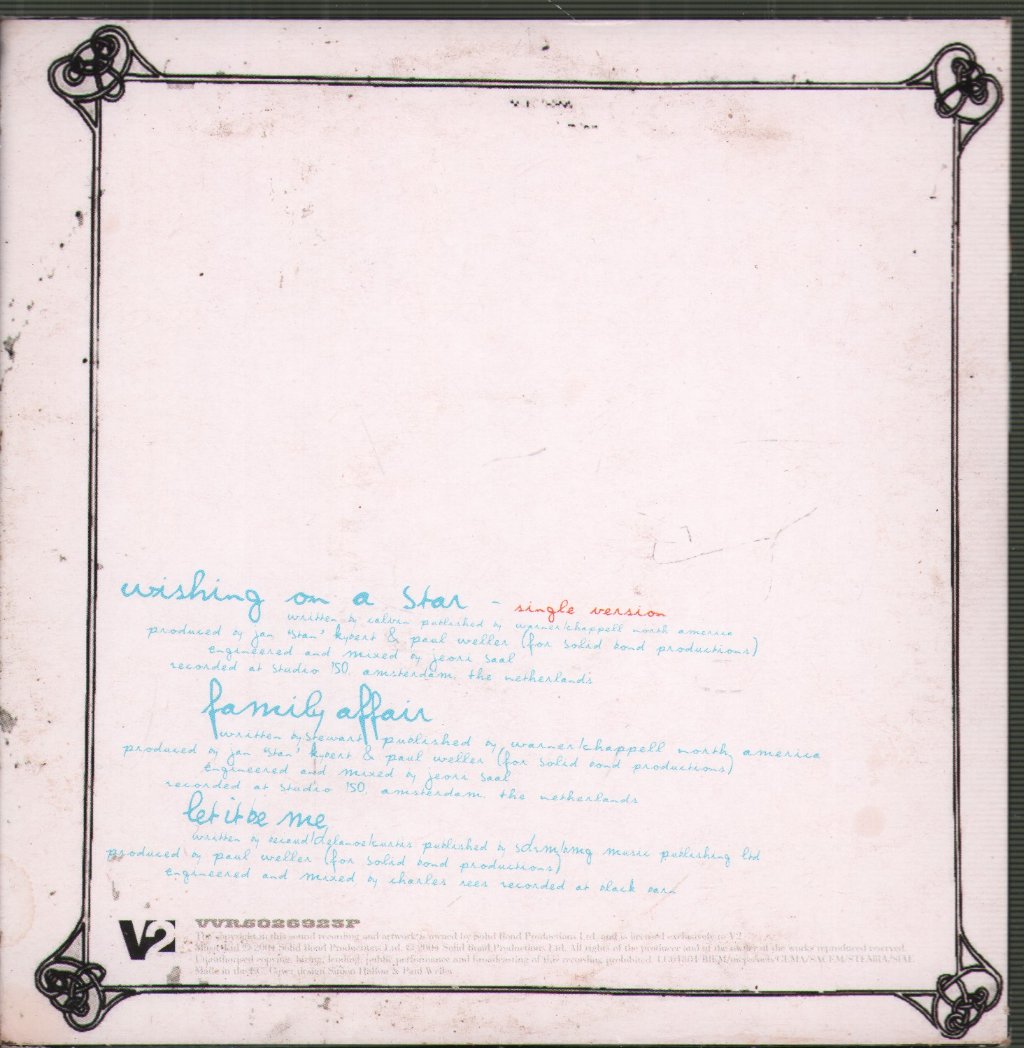 wishing on a star - single version
written by calvin published by warner/chappell north america
produced by jan "stan" kybert & paul weller (for solid bond productions)
engineered and mixed by jeori saal
recorded at studio 150, amsterdam, the netherlands
family affair
written by stewart published by warner/chappell north america
produced by jan "stan" kybert & paul weller (for solid bond productions)
engineered and mixed by jeori saal
recorded at studio 150, amsterdam, the netherlands
let it be me
written by becaud/delanoe/curtis published by sdrm/bmg music publishing ltd
produced by paul weller (for solid bond productions)
engineered and mixed by charles rees recorded at black barn
V2
VVR5026923P
The copyright in this sound recording and artwork is owned by Solid Bond Productions Ltd. and is licensed exclusively to V2
Music Ltd ℗ 2004 Solid Bond Productions Ltd. © 2004 Solid Bond Productions Ltd. All rights of the producer and of the owner of the works reproduced reserved.
Unauthorised copying, hiring, lending, public performance and broadcasting of this recording prohibited. LC01801 BIEM/mcps/ncb/GEMA/SACEM/STEMRA/SIAE
Made in the EC. Cover design Simon Halfon & Paul Weller